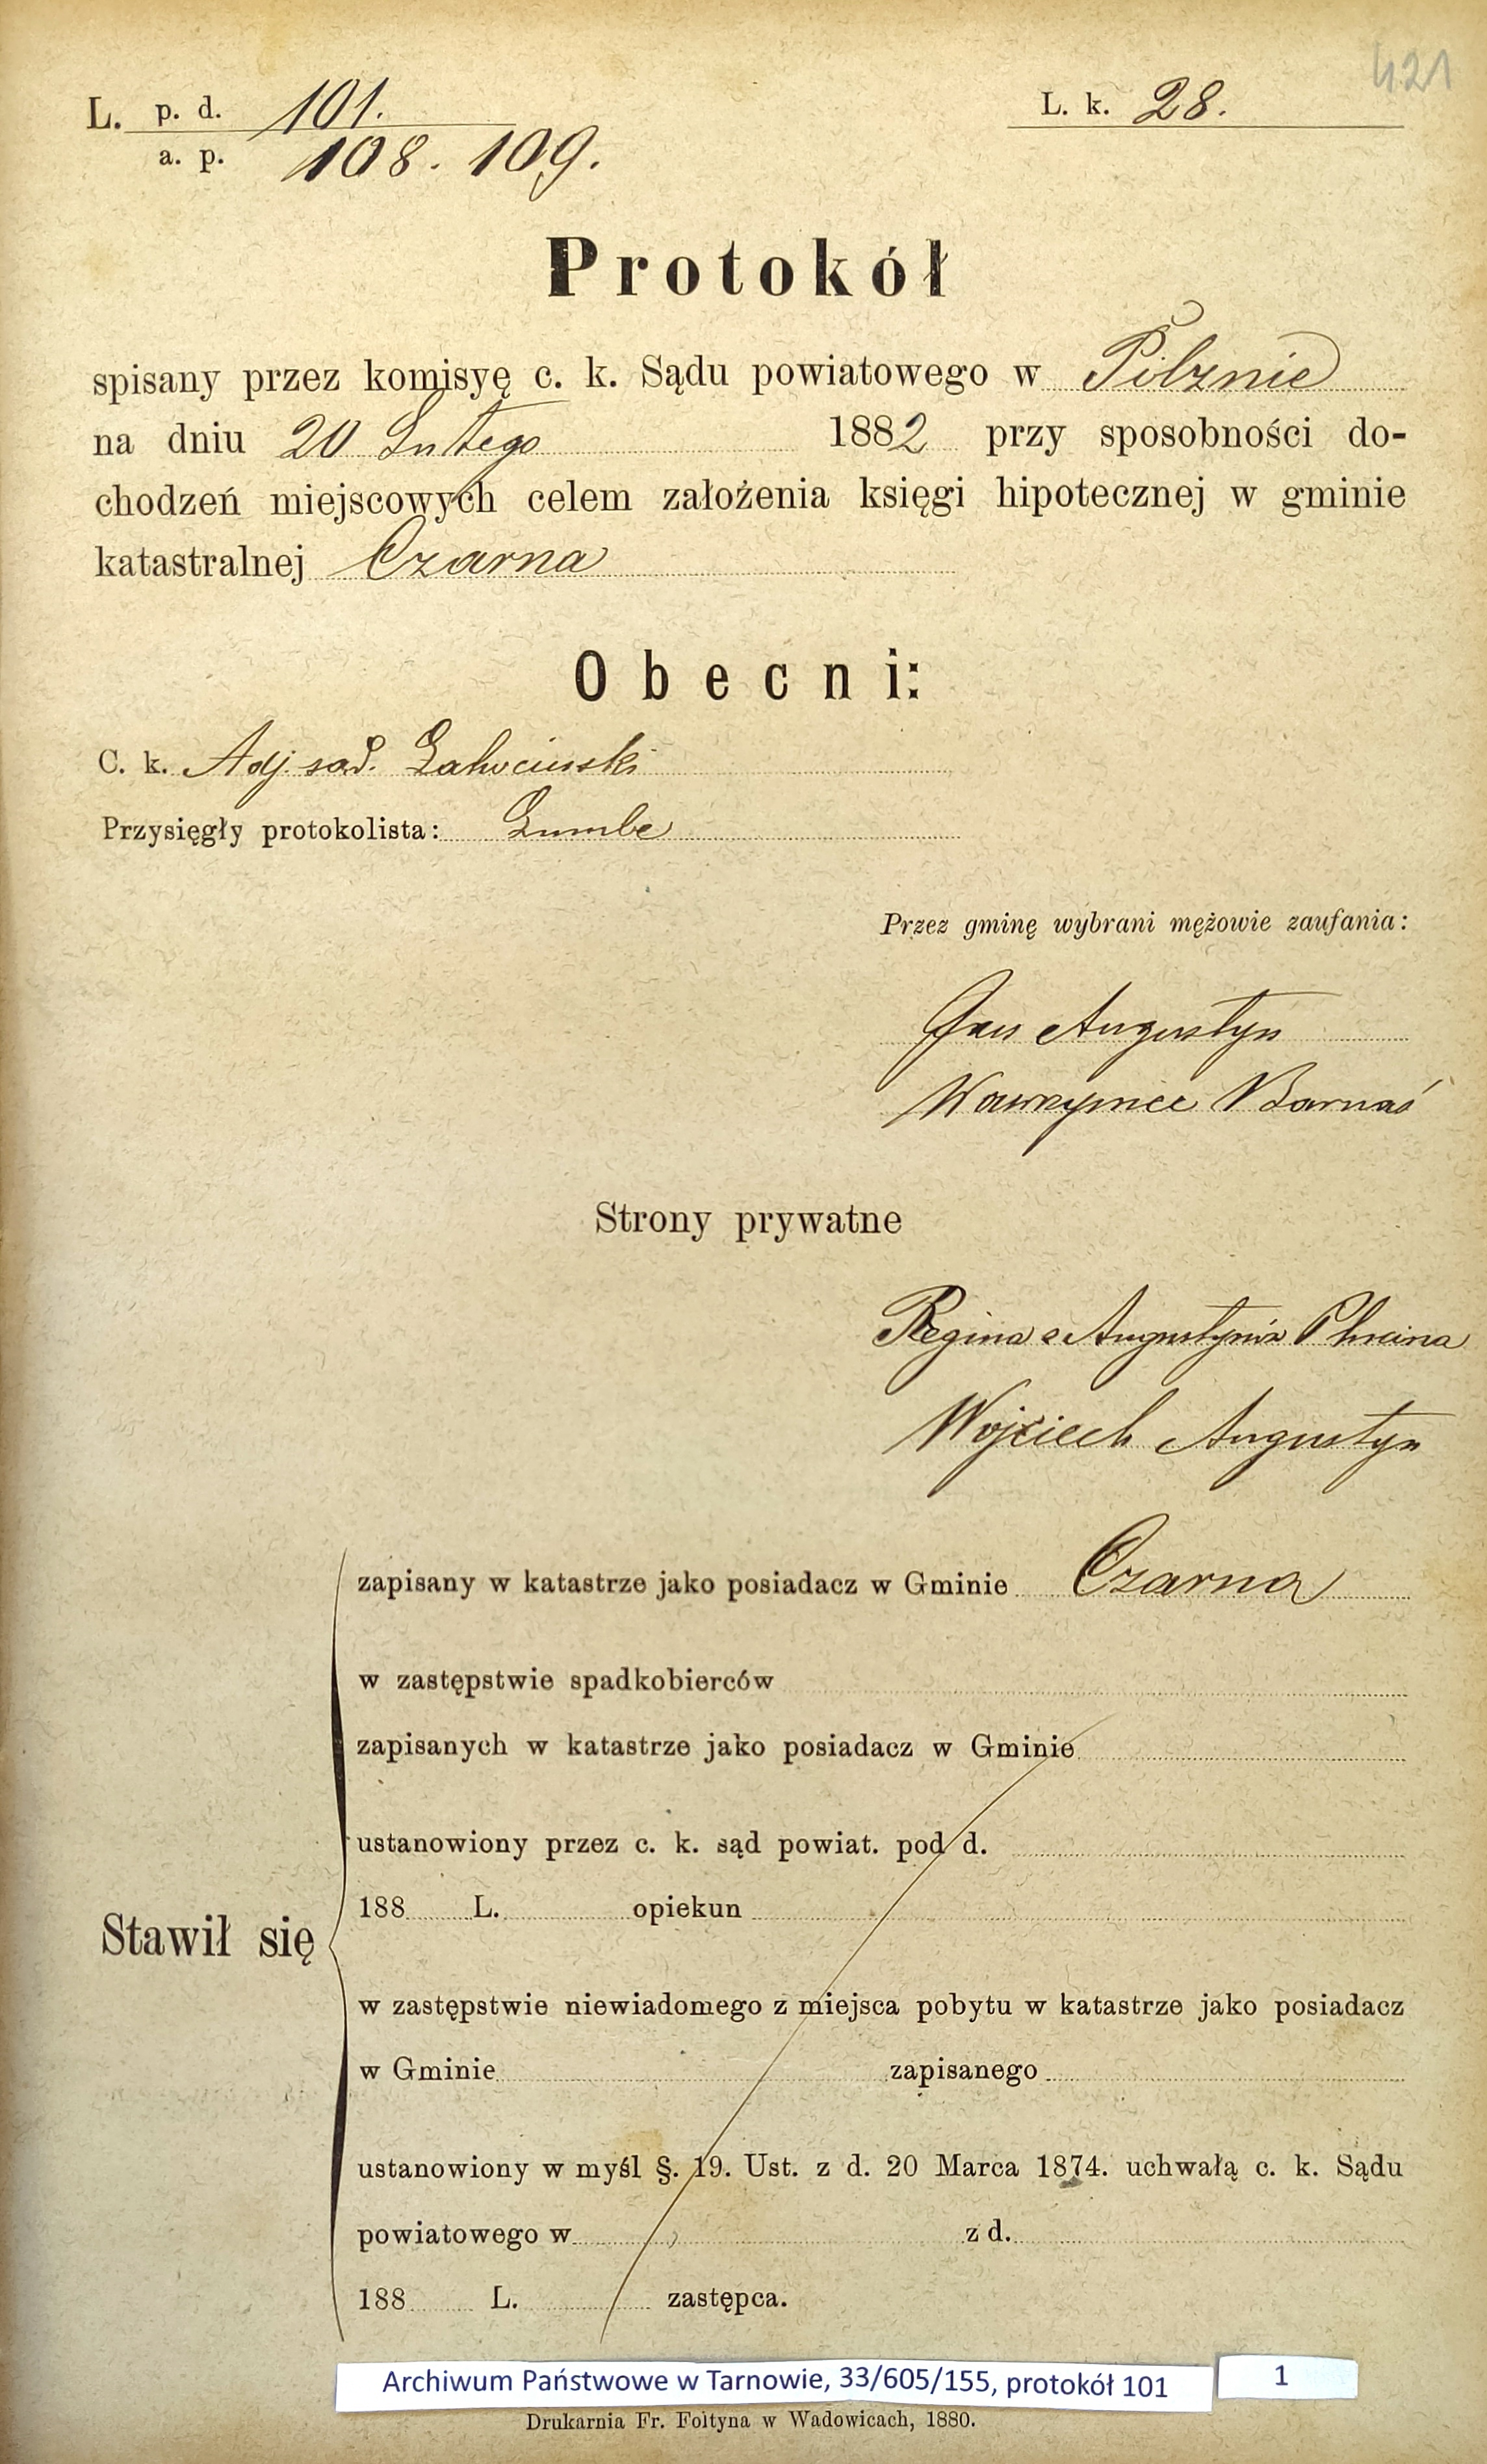 421
L. p. d. 101.
a. p. 108. 109.
L. k. 28.
Protokół
spisany przez komisyę c. k. Sądu powiatowego w Pilznie
na dniu 20 Lutego 1882 przy sposobności do-
chodzeń miejscowych celem założenia księgi hipotecznej w gminie
katastralnej Czarna
Obecni:
C. k. Adj. sąd.
Przysięgły protokolista:
Przez gminę wybrani mężowie zaufania:
Jan Augustyn
Wawrzyniec Barnaś
Strony prywatne
Regina z Augustynów
Wojciech Augustyn
zapisany w katastrze jako posiadacz w Gminie Czarna
w zastępstwie spadkobierców
zapisanych w katastrze jako posiadacz w Gminie
ustanowiony przez c. k. sąd powiat. pod d.
188 L. opiekun
Stawił się
w zastępstwie niewiadomego z miejsca pobytu w katastrze jako posiadacz
w Gminie zapisanego
ustanowiony w myśl §. 19. Ust. z d. 20 Marca 1874. uchwałą c. k. Sądu
powiatowego w z d.
188 L. zastępca.
Archiwum Państwowe w Tarnowie, 33/605/155, protokół 101
1
Drukarnia Fr. Foltyna w Wadowicach, 1880.